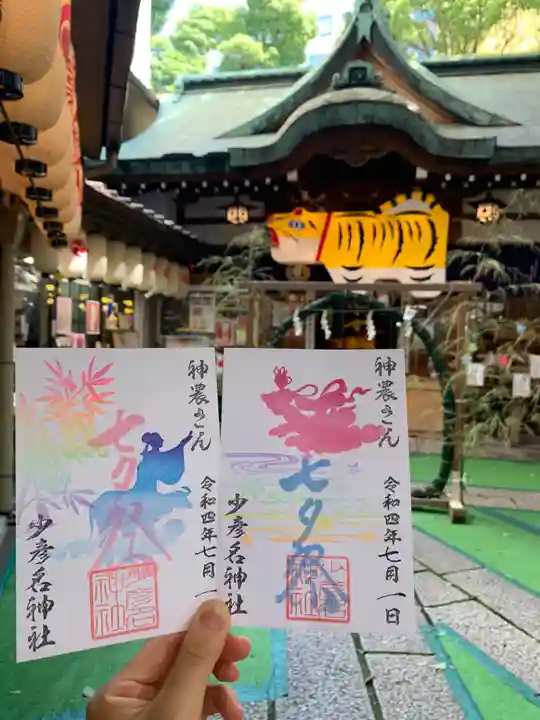 神農さん
七夕祭
令和四年七月一
少彦名神社
神農さん
七夕祭
令和四年七月一日
少彦名神社